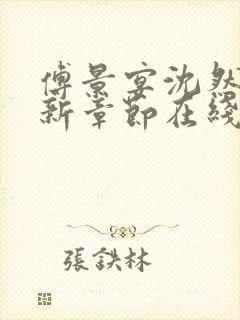 傅景宴沈然
新章節在綫
張鉄林